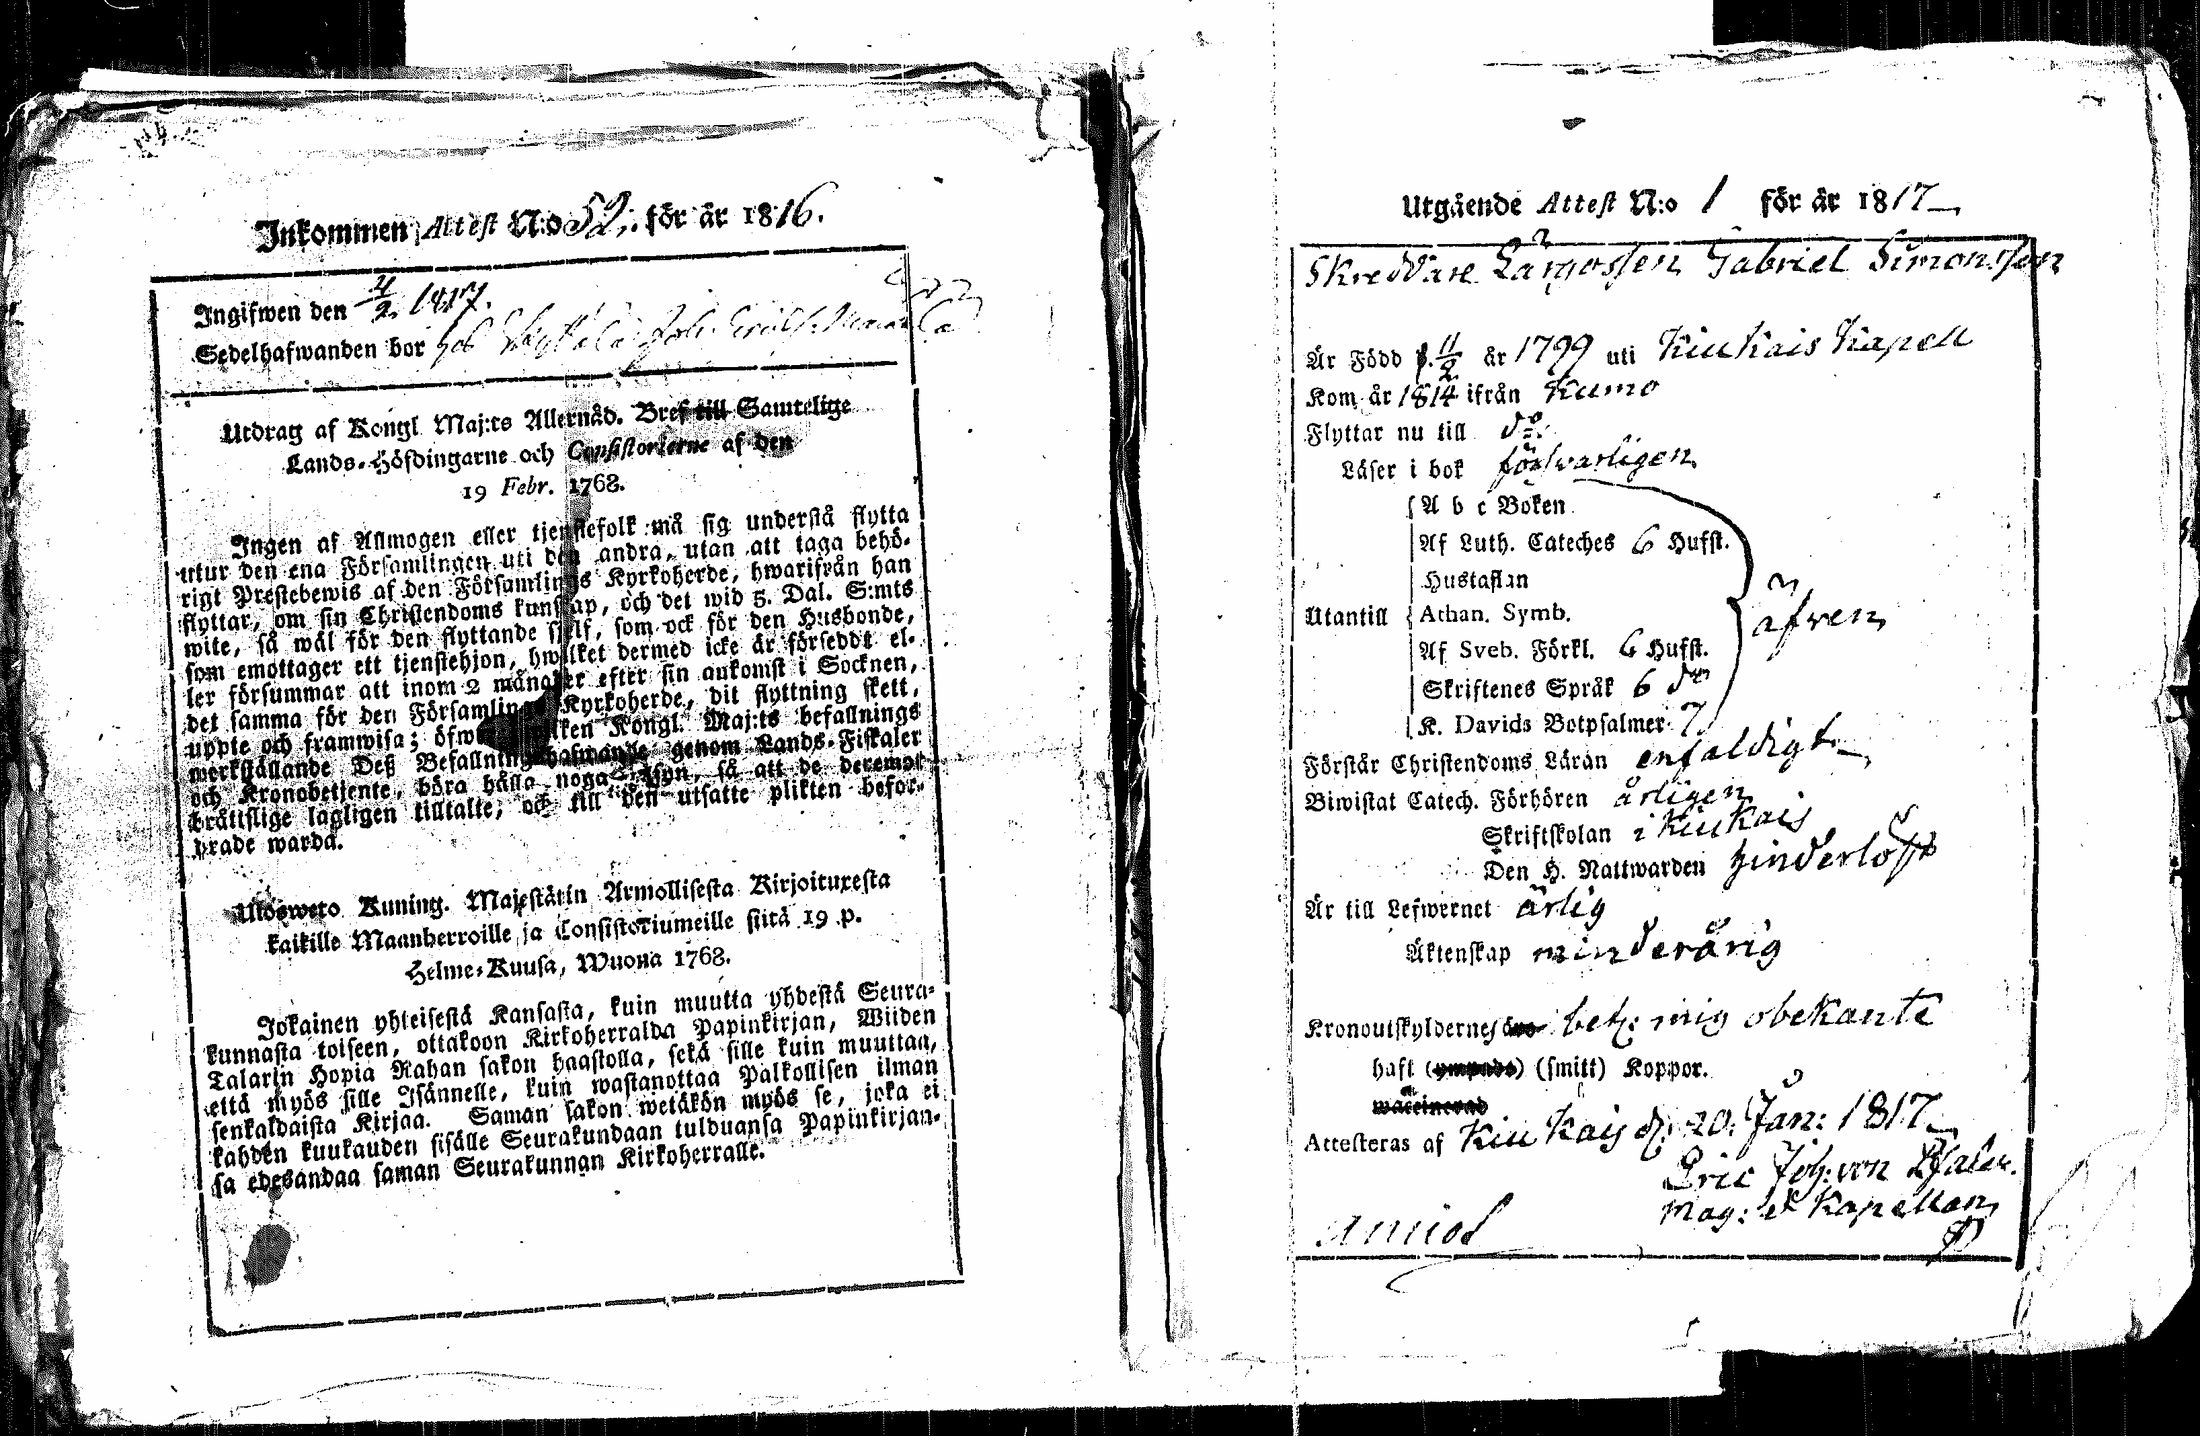 Inkommen Attest N:o 52. för år 1816.
Ingifwen den 4/2 1817.
Sedelhafwanden bor hos
Utdrag af Kongl. Maj:ts Allernåd. Bref till Samtelige
Lands-Höfdingarne och Consistorierne af den
19 Febr. 1768.
Ingen af Allmogen eller tjenstefolk må sig understå flytta
utur den ena Församlingen uti den andra, utan att taga behö-
rigt Prestebewis af den Församlings Kyrkoherde, hwarifrån han
flyttar, om sin Christendoms kunskap, och det wid 5. Dal. S:mts
wite, så wäl för den flyttande sjelf, som ock för den Husbonde,
som emottager ett tjenstehjon, hwilket dermed icke är förseddt el-
ler försummar att inom 2 månader efter sin ankomst i Socknen,
det samma för den Församlings Kyrkoherde, dit flyttning skett,
uppte och framwisa; Kongl. Maj:ts befallnings
werkställande Deß Befallningshafwande genom Lands-Fiskaler
och Kronobetjente, böra hålla noga så att de deremot
brättslige lagligen tilltalte, och till den utsatte plikten befor-
drade warda.
Ulosweto Kuning. Majestätin Armollisesta Kirjoituxesta
kaikille Maanherroille ja Consistoriumeille siitä 19 p.
Helme-Kuusa, Wuona 1768.
Jokainen yhteisestä Kansasta, kuin muutta yhdestä Seura-
kunnasta toiseen, ottakoon Kirkoherralda Papinkirjan, Wiiden
Talarin Hopia Rahan sakon haastolla, sekä sille kuin muuttaa,
että myös sille Isännelle, kuin wastanottaa Palkollisen ilman
senkaldaista Kirjaa. Saman sakon wetäkön myös se, joka ei
kahden kuukauden sisälle Seurakundaan tulduansa Papinkirjan-
sa edesandaa saman Seurakunnan Kirkoherralle.
Utgående Attest N:o 1 för år 1817
Skreddare Lärgossen Gabriel Simonsson
Är Född d. 11/2 år 1799 uti Kiukais Kapell
Kom år 1814 ifrån Kumo
Flyttar nu till do:
Läser i bok försvarligen
A b c Boken
Af Luth. Cateches 6 Hufst.
Hustaflan
Utantill Athan. Symb. äfven
Af Sveb. Förkl. 6 Hufst.
Skriftenes Språk 6 do
K. Davids Botpsalmer 7
Förstår Christendoms Läran enfaldigt
Biwistat Catech. Förhören årligen
Skriftskolan i Kiukais
Den H. Nattwarden hinderlöst
Är till Lefwernet ärlig
Äktenskap minderårig
Kronoutskylderne bet: mig obekante
haft (smitt) Koppor.
waccinerad
Attesteras af Kiukais d. 20. Jan: 1817
Eric Joh: von Pfaler.
Mag: & Kapellan